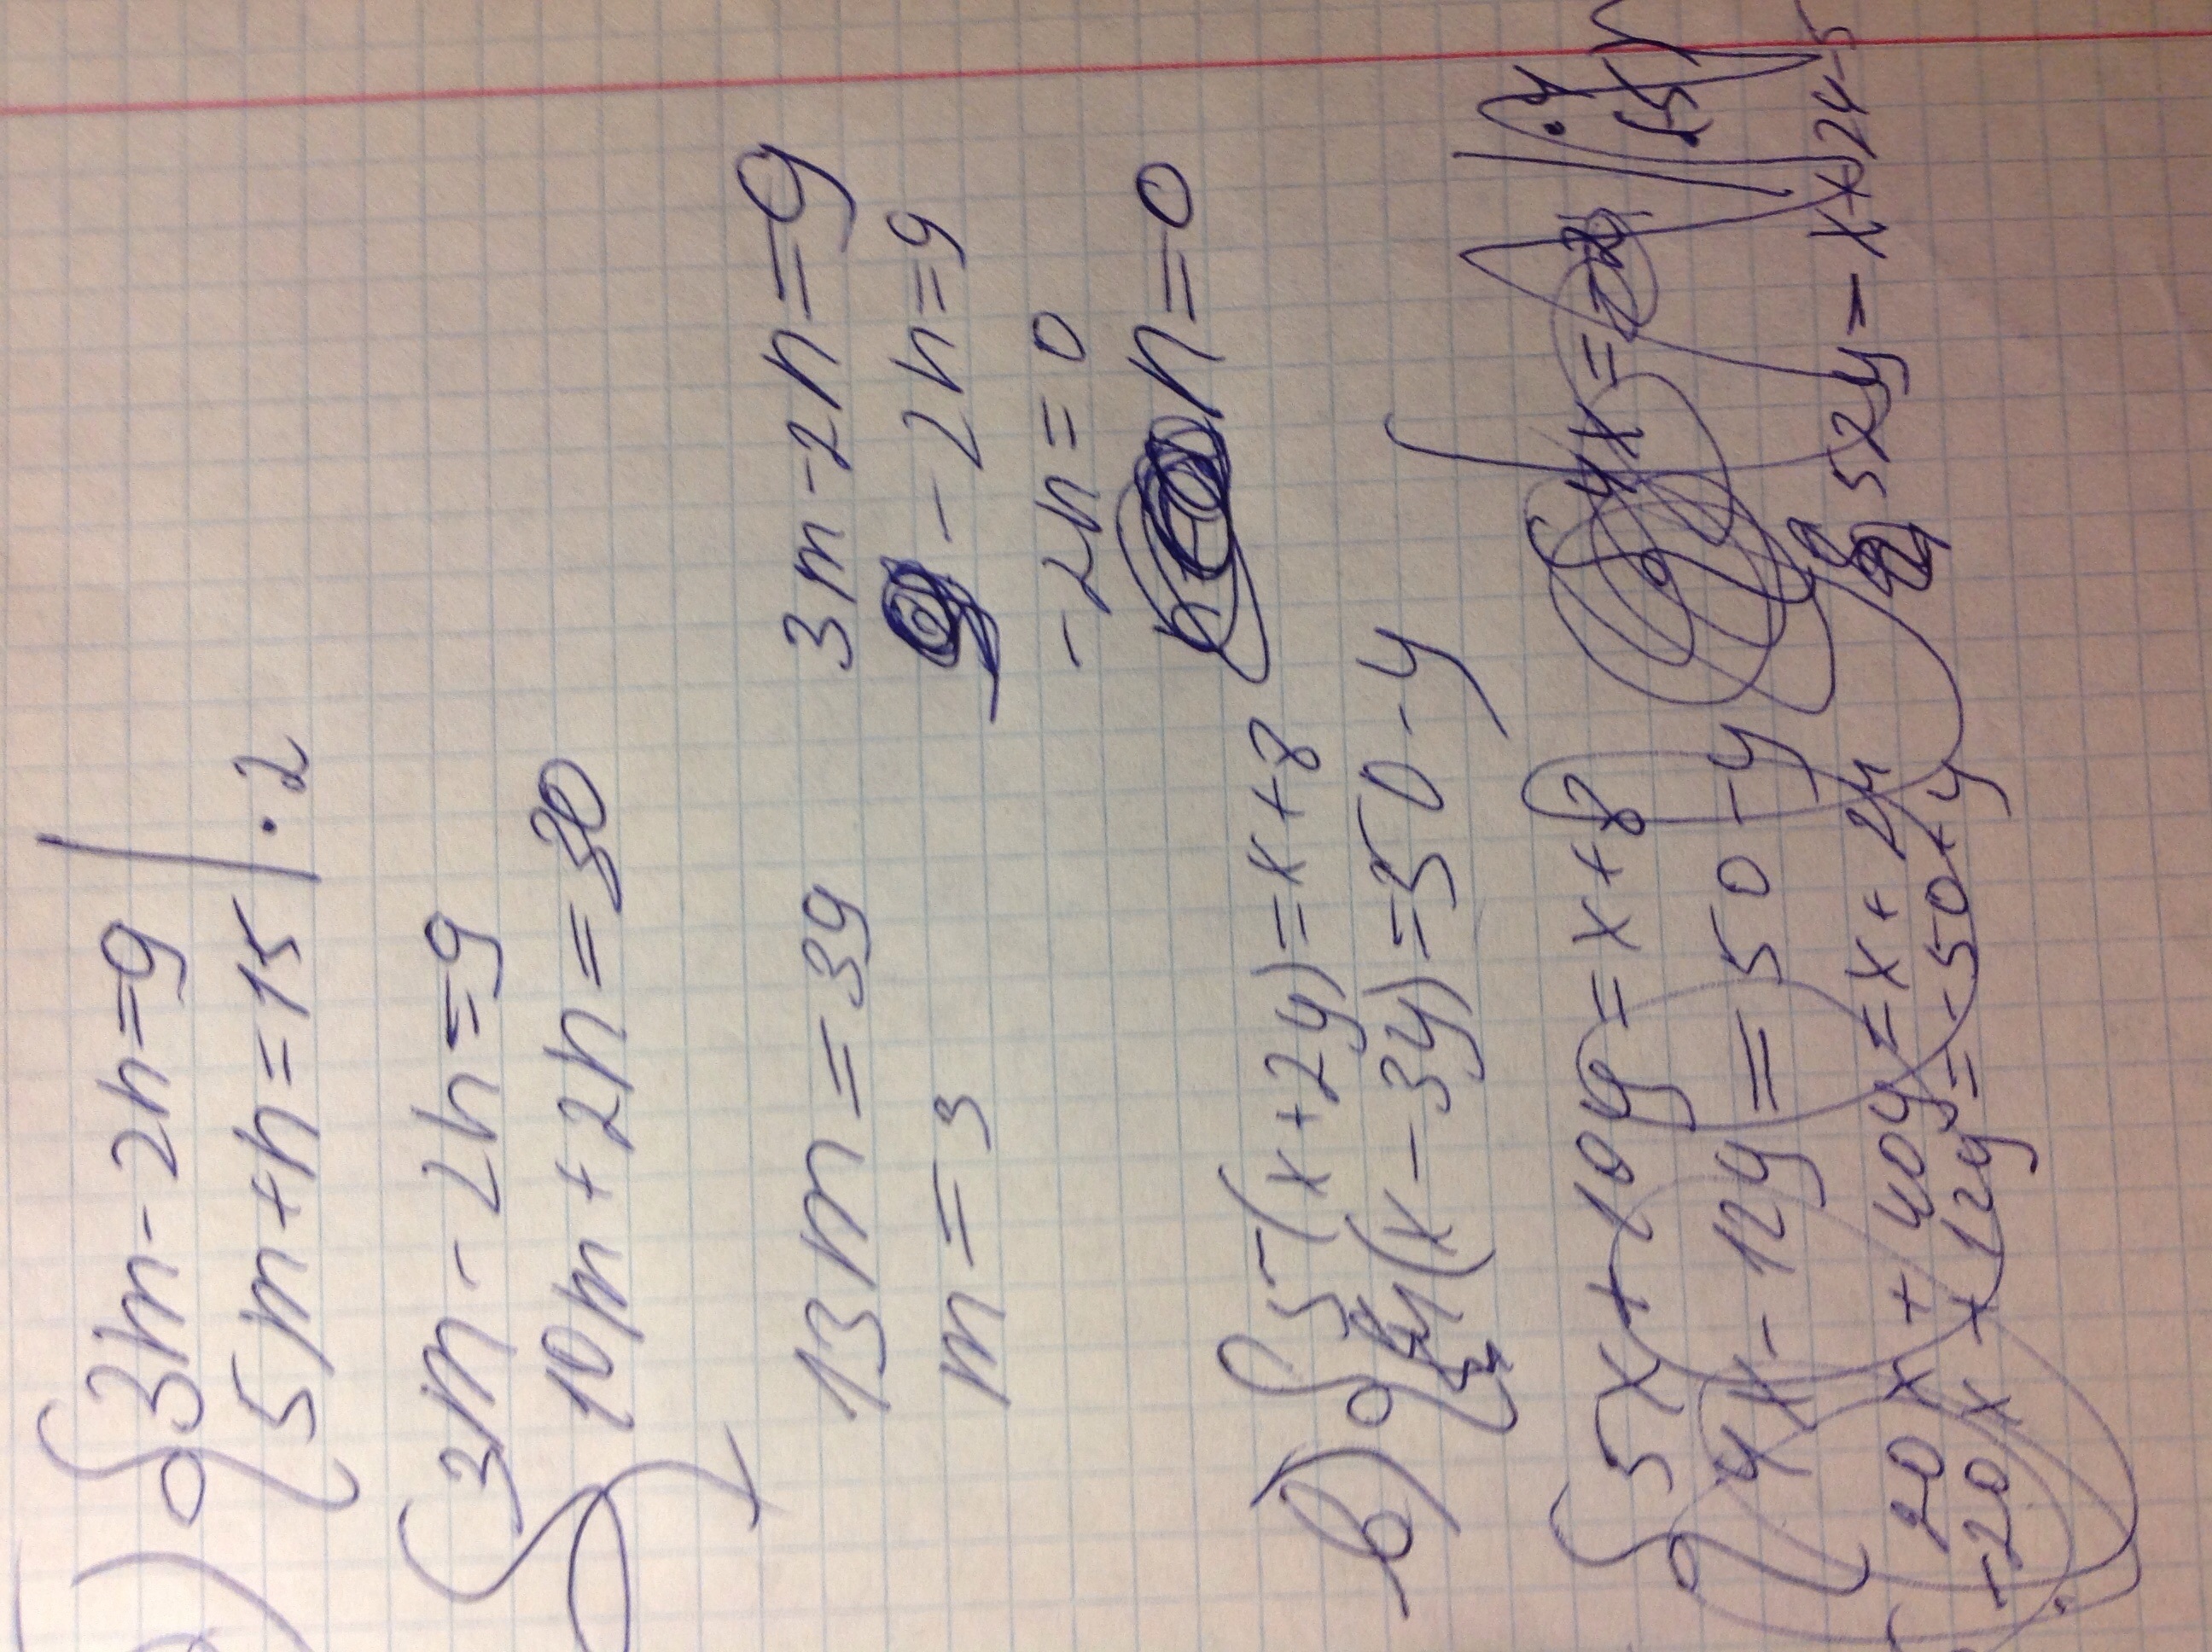 3m - 2n = 9
5m + n = 15 | · 2
3m - 2n = 9
10m + 2n = 30
13m = 39
m = 3
3m - 2n = 9
- 2n = 9
-2n = 0
n = 0
в) 5(x + 2y) = x + 8
4(x - 3y) = 50 - y
5x + 10y = x + 8
4x - 12y = 50 - y
20x + 40y = x + 24
-20x + 12y = -50 + y
4x =
52y = x + 24 - 5